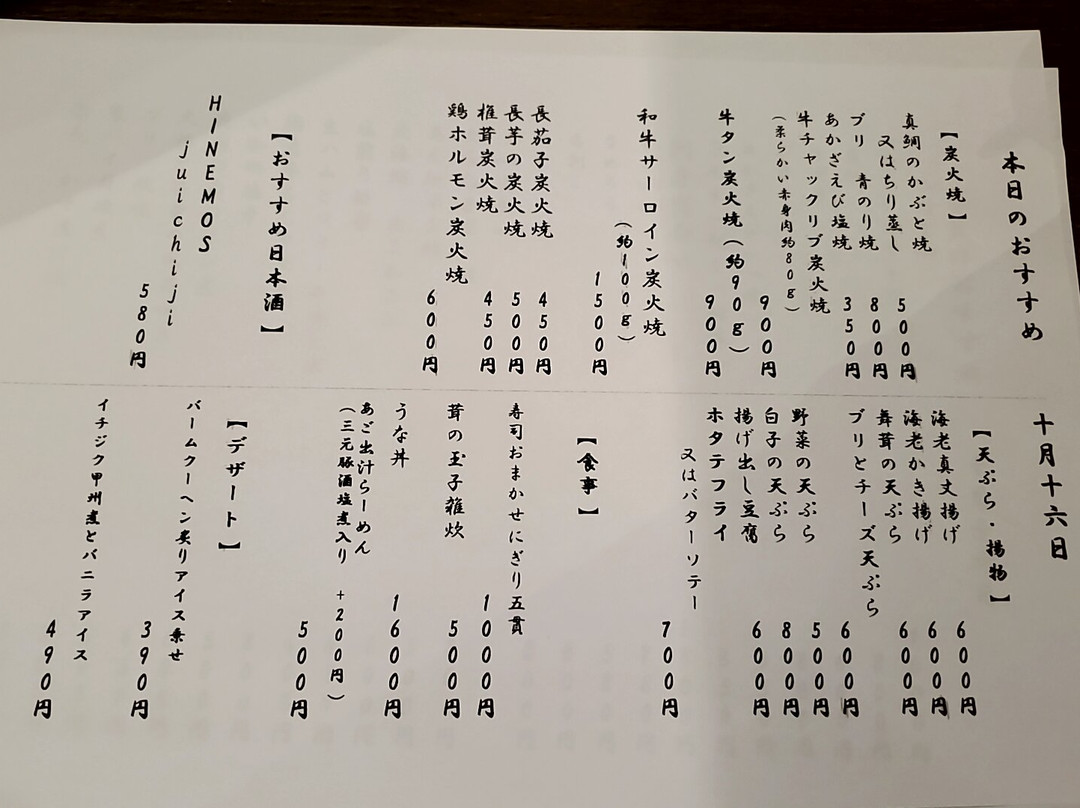 本日のおすすめ 十月十六日
【炭火焼】
真鯛のかぶと焼
又はちり蒸し 500円
ブリ 青のり焼 800円
あかざえび塩焼 350円
牛チャックリブ炭火焼
(柔らかい赤身肉約80g) 900円
牛タン炭火焼(約90g) 900円
和牛サーロイン炭火焼
(約100g) 1500円
長茄子炭火焼 450円
長芋の炭火焼 500円
椎茸炭火焼 450円
鶏ホルモン炭火焼 600円
【おすすめ日本酒】
HINEMOS
juichiji 580円
【天ぷら・揚物】
海老真丈揚げ 600円
海老かき揚げ 600円
舞茸の天ぷら 600円
ブリとチーズ天ぷら 600円
野菜の天ぷら 500円
白子の天ぷら 800円
揚げ出し豆腐 600円
ホタテフライ
又はバターソテー 700円
【食事】
寿司おまかせにぎり五貫 1000円
茸の玉子雑炊 500円
うな丼 1600円
あご出汁らーめん
(三元豚酒塩煮入り +200円) 500円
【デザート】
バームクーヘン炙りアイス乗せ 390円
イチジク甲州煮とバニラアイス 490円